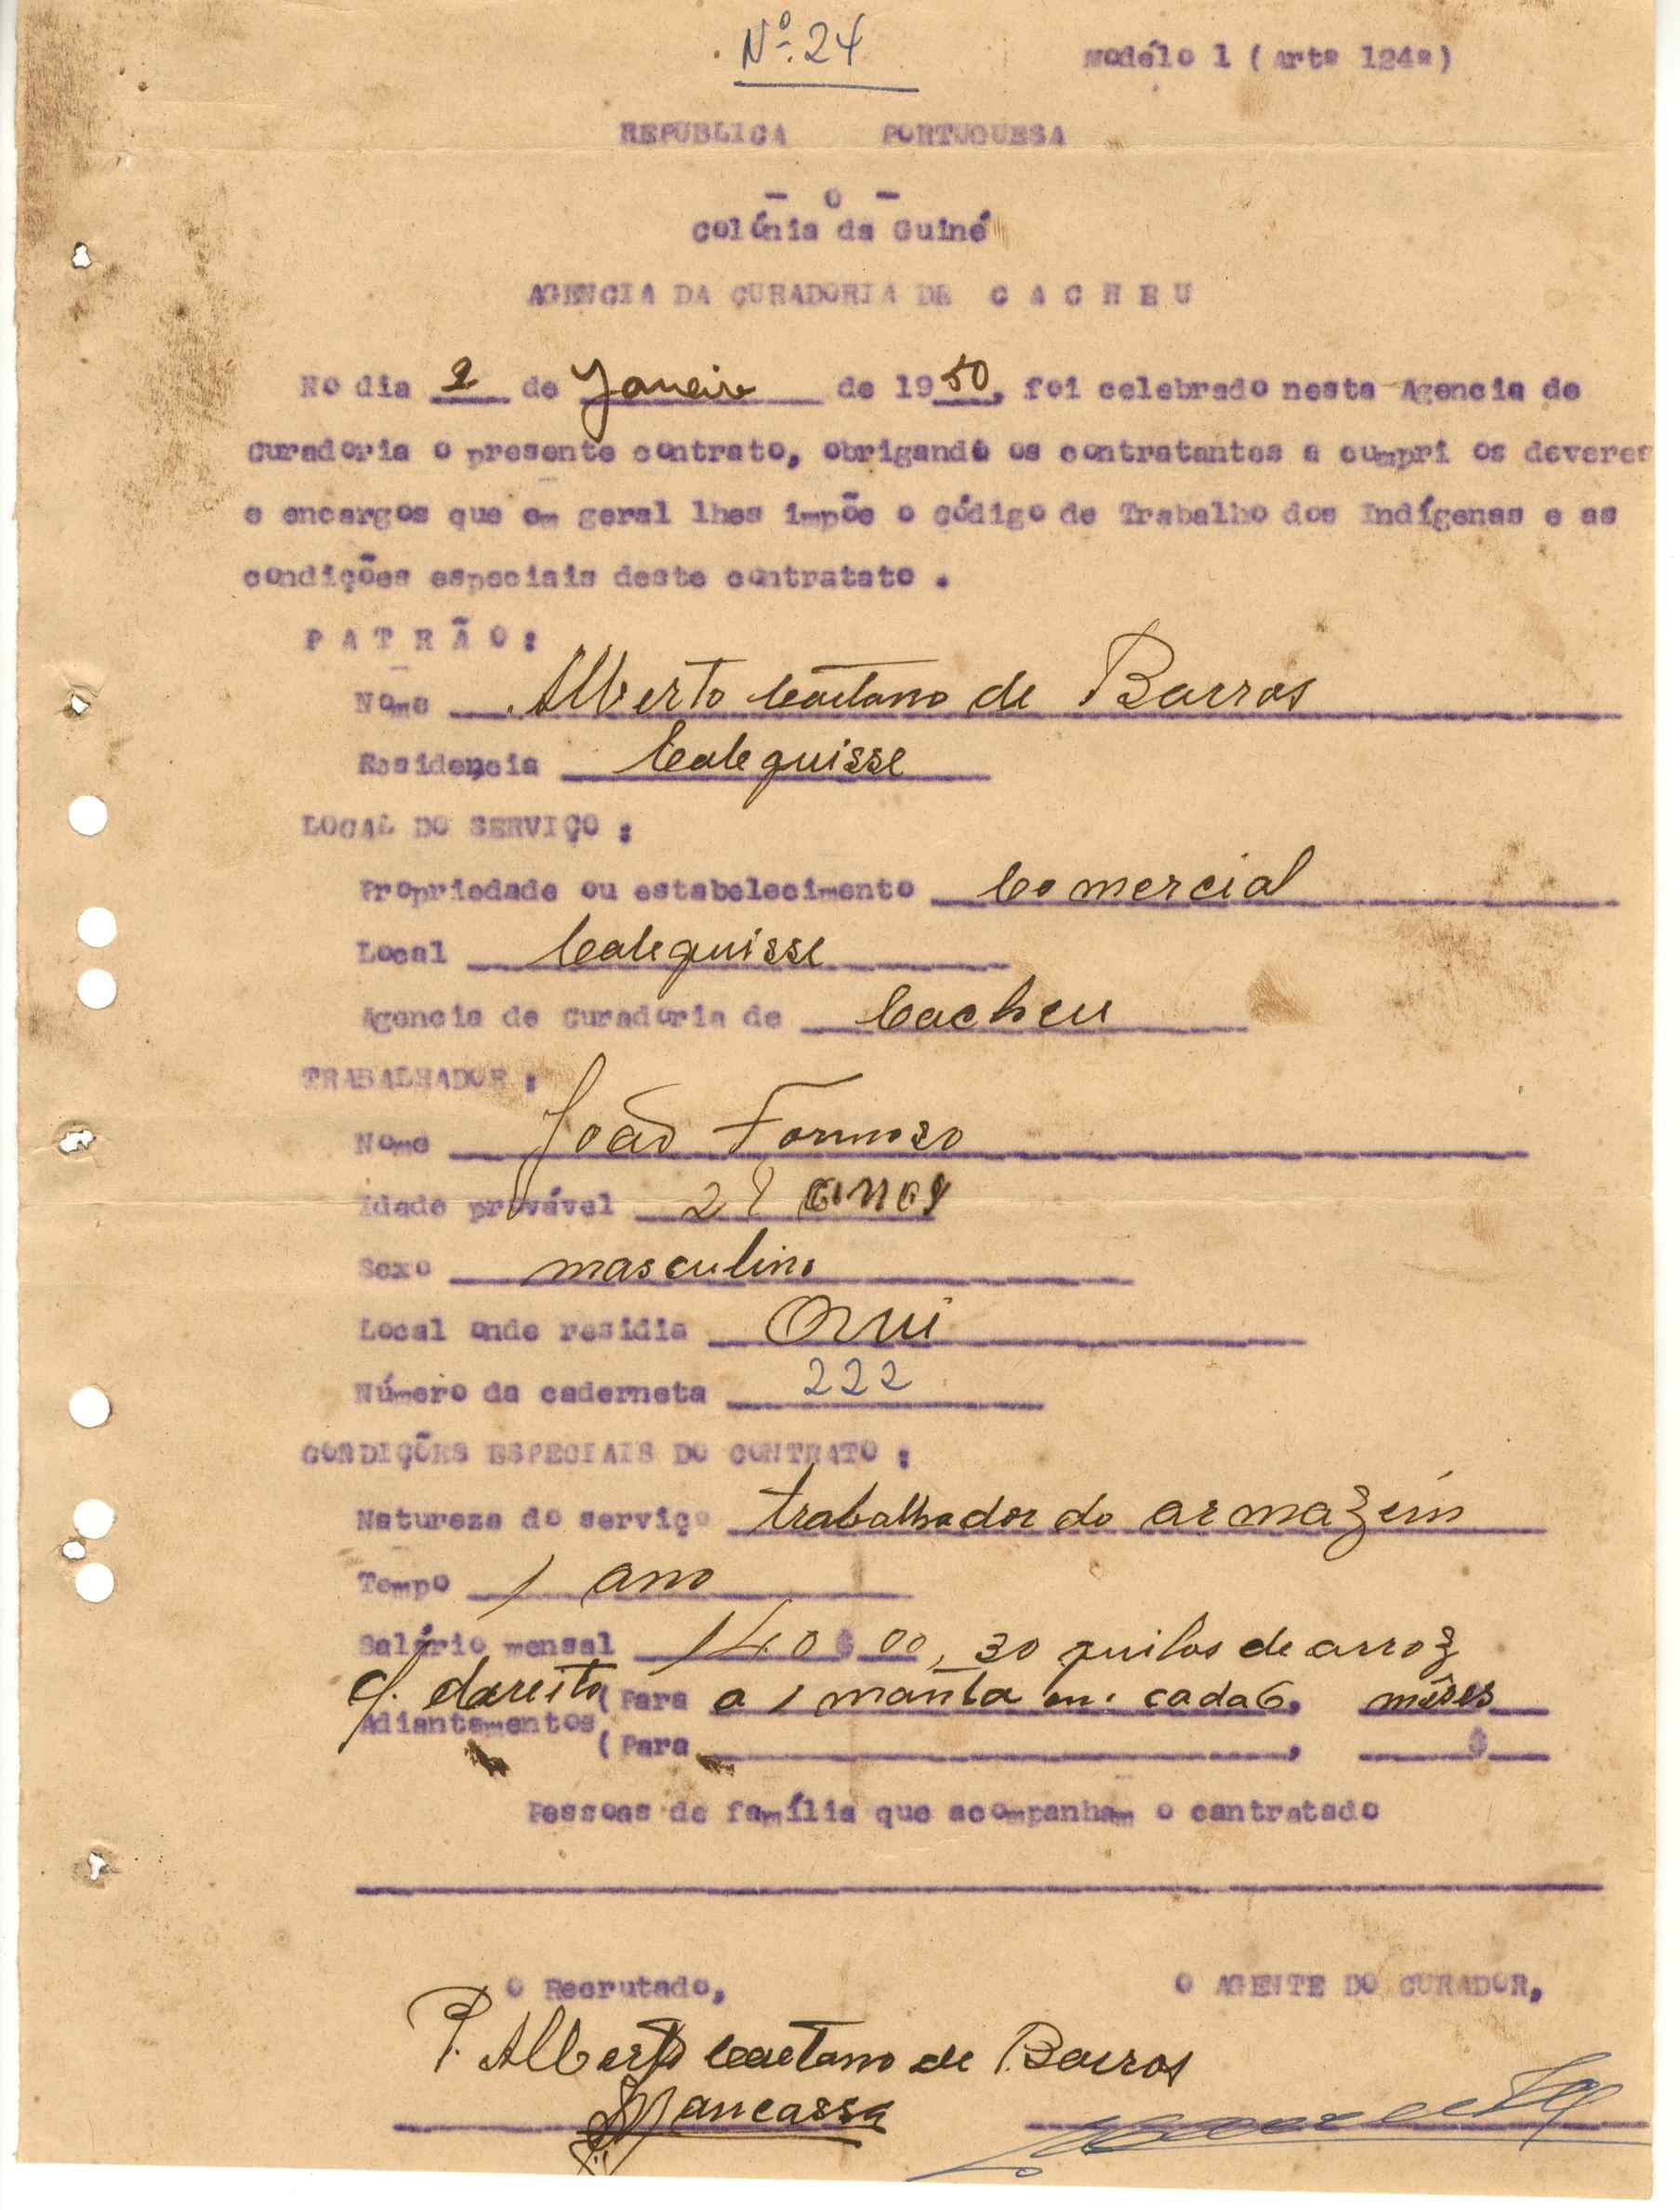 Nº 24
Modélo 1 ( Artº 124º)
REPUBLICA PORTUGUESA
- o -
Colónia da Guiné
AGENCIA DA CURADORIA DE C A C H E U
No dia 2 de Janeiro de 1950, foi celebrado nesta Agencia de
Curadoria o presente contrato, obrigando os contratantes a cumpri os deveres
e encargos que em geral lhes impõe o Código de Trabalho dos Indígenas e as
condições especiais deste contratato .
P A T R Ã O :
Nome Alberto Caetano de Barros
Residencia Calequisse
LOCAL DO SERVIÇO :
Propriedade ou estabelecimento Comercial
Local Calequisse
Agencia de Curadoria de Cacheu
TRABALHADOR :
Nome João Formoso
Idade provável anos
Sexo masculino
Local onde residia
Número da caderneta 222
CONDIÇÕES ESPECIAIS DO CONTRATO :
Natureza do serviço trabalhador do armazém
Tempo 1 ano
Salário mensal 140$00, 30 quilos de arroz
c/. dareito (Para a 1 manta em cada 6, mêses
Adiantamentos
(Para , $
Pessoas de família que acompanham o cantratado
O Recrutado,
O AGENTE DO CURADOR,
P. Alberto Caetano de Barros
Mancassa